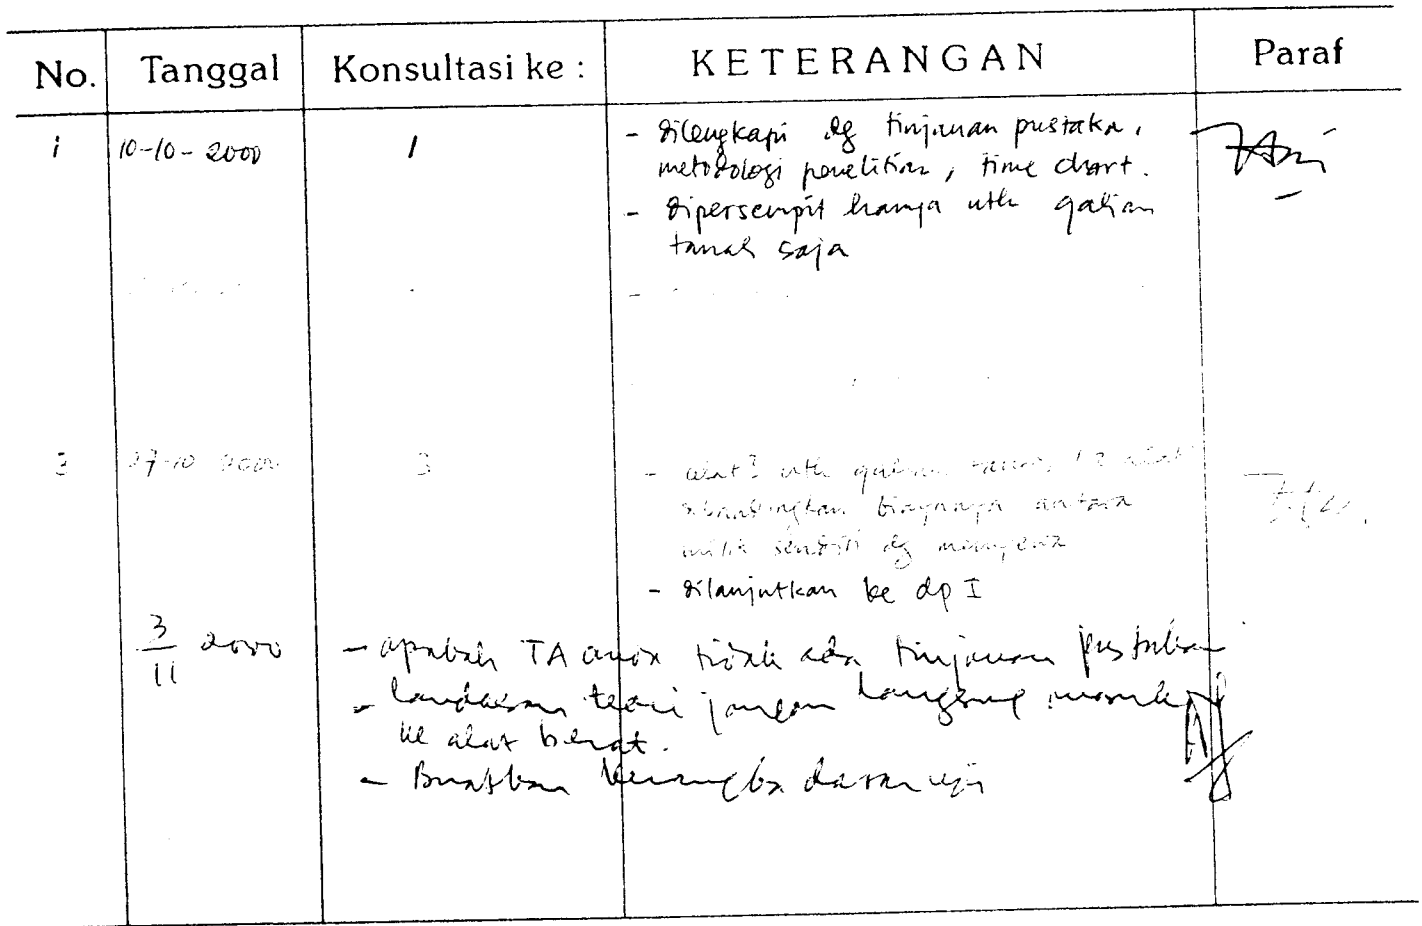 No. Tanggal Konsultasi ke : KETERANGAN Paraf
1 10-10-2000 1 - dilengkapi dg tinjauan pustaka,
metodologi penelitian, time chart.
- dipersempit hanya utk galian
tanah saja
3 27-10 2000 3 - alat2 utk galian tanah
dibandingkan biayanya antara
milik sendiri dg menyewa
- dilanjutkan ke dp I
3/11 2000 - apakah TA anda tidak ada tinjauan pustaka
- landasan teori jangan langsung masuk
ke alat berat.
- Buatkan kerangka dasarnya